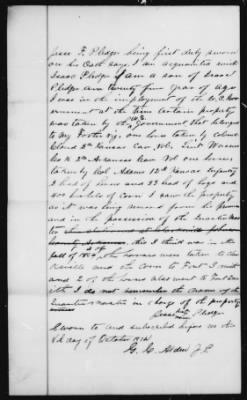 Jesse F. Pledger being first duly sworn
on his Oath says I am acquainted with
Isaac Pledger I am a son of Isaac
Pledger am twenty four years of age
I was in the employment of the U.S. Gov
ernment at the time certain property
was taken by the U.S. Government that belongs
to My Father viz. one horse taken by Colonel
Cloud 2nd Kansas Cav. Vols. Lieut
Co. 2nd Arkansas Cav. Vol one horse
taken by Col. Adams 12th Kansas Infantry
2 head of and 25 head of hogs and
bushels of corn I saw the property
as it was being driven from the farm
and in the possession of the Quarter Mas
ter
this I think was in the
fall of 1864 the horses were taken to
and the Corn to Fort Smith
and 2 of the horses also went to Fort Sm
ith I do not remember the name of the
Quarter Master in charge of the property
Jesse F. Pledger
Sworn to and subscribed before me this
8th day of October
G. C. Alden J.P.